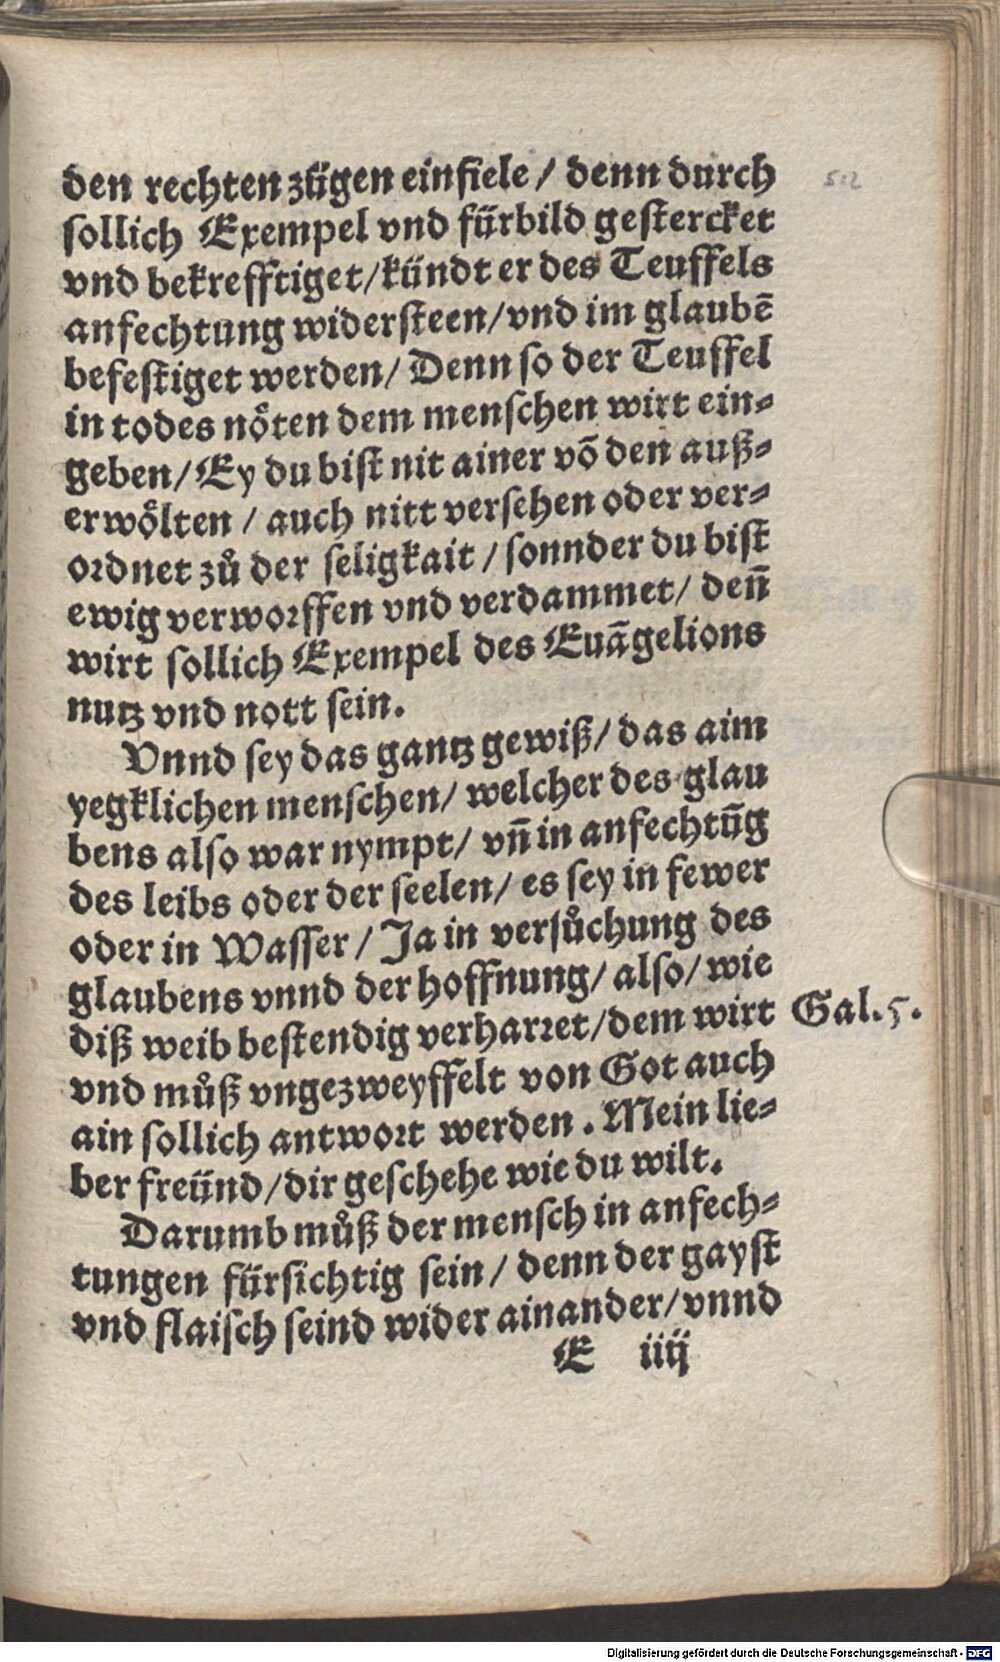 den rechten zügen einfiele / denn durch
sollich Exempel vnd fürbild gestercket
vnd bekrefftiget / kündt er des Teuffels
anfechtung widersteen / vnd im glaubē
befestiget werden / Denn so der Teuffel
in todes nöten dem menschen wirt ein⸗
geben / Ey du bist nit ainer võ den auß⸗
erwölten / auch nitt versehen oder ver⸗
ordnet zů der seligkait / sonnder du bist
ewig verworffen vnd verdammet / deñ
wirt sollich Exempel des Euãgelions
nutz vnd nott sein.
Vnnd sey das gantz gewiß / das aim
yegklichen menschen / welcher des glau
bens also war nympt / vñ in anfechtũg
des leibs oder der seelen / es sey in fewer
oder in Wasser / Ja in versůchung des
glaubens vnnd der hoffnung / also / wie
diß weib bestendig verharret / dem wirt Gal. 5.
vnd můß vngezweyffelt von Got auch
ain sollich antwort werden. Mein lie⸗
ber freünd / dir geschehe wie du wilt.
Darumb můß der mensch in anfech⸗
tungen fürsichtig sein / denn der gayst
vnd flaisch seind wider ainander / vnnd
E iiij
512
Digitalisierung gefördert durch die Deutsche Forschungsgemeinschaft - DFG